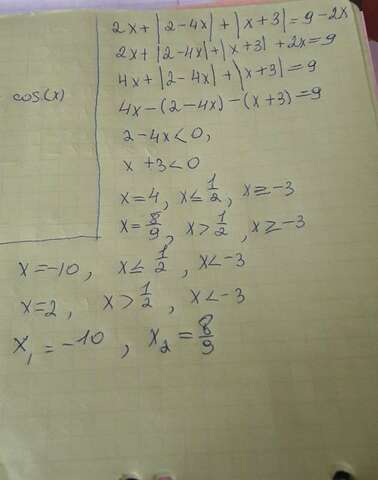 2x + |2-4x| + |x+3| = 9-2x
2x + |2-4x| + |x+3| + 2x = 9
cos(x)
4x + |2-4x| + |x+3| = 9
4x - (2-4x) - (x+3) = 9
2-4x < 0,
x+3 < 0
x = 4, x ≤ 1/2, x ≥ -3
x = 8/9, x > 1/2, x ≥ -3
x = -10, x ≤ 1/2, x < -3
x = 2, x > 1/2, x < -3
x₁ = -10, x₂ = 8/9